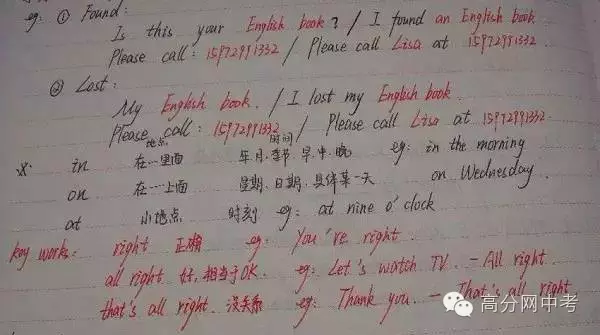 eg: ① Found:
Is this your English book? / I found an English book
Please call: 15972991332 / Please call Lisa at 15972991332.
② Lost:
My English book. / I lost my English book.
Please call: 15972991332 / Please call Lisa at 15972991332.
地点 时间
※ in 在…里面 年.月.季节.早.中.晚 eg: in the morning
on 在…上面 星期.日期.具体某一天 on Wednesday.
at 小地点 时刻 eg: at nine o'clock
key works: right 正确 eg: You're right.
all right 好.相当于OK. eg: Let's watch TV. - All right.
that's all right. 没关系 eg: Thank you. - That's all right.
高分网中考